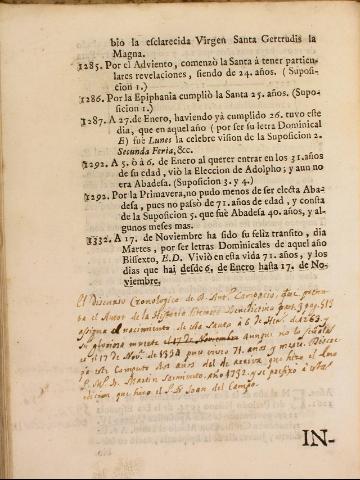 bio la esclarecida Virgen Santa Gertrudis la
Magna.
1285. Por el Adviento, comenzò la Santa à tener particu-
lares revelaciones, siendo de 24. años. ( Suposi-
cion 1.)
1286. Por la Epiphania cumpliò la Santa 25. años. (Supo-
sicion 1.)
1287. A 27. de Enero, haviendo yà cumplido 26. tuvo este
dia, que en aquel año ( por ser su letra Dominical
E) fuè Lunes la celebre vision de la Suposicion 2.
Secunda Feria, &cc.
1292. A 5. ò à 6. de Enero al querer entrar en los 31. años
de su edad, viò la Eleccion de Adolpho; y aun no
era Abadesa. (Suposicion 3. y 4.)
1292. Por la Primavera, no pudo menos de ser electa Aba-
desa, pues no pasò de 71. años de edad, y consta
de la Suposicion 5. que fuè Abadesa 40. años, y al-
gunos meses mas.
1332. A 17. de Noviembre ha sido su feliz transito, dia
Martes, por ser letras Dominicales de aquel año
Bissexto, E.D. Viviò en esta vida 71. años, y los
dias que hai desde 6. de Enero hasta 17. de No-
viembre.
El discurso Cronologico de D. Ant.
ba el Autor de la Historia Literaria Benedictina pag. 513
asigna el nacimiento de Sta a 6 de de 1263. y
su gloriosa muerte el 17 de Noviembre aunque no lo señala
el 17 de Nov. de 1334 pues vivio 71. años y meses.
este Computo dos años del de arriva que hizo el Rmo
P. M. Dr. Martin Sarmiento, año 1752. y se prefixo à esta
edicion que hizo el P. Dr Juan del Campo.
IN-